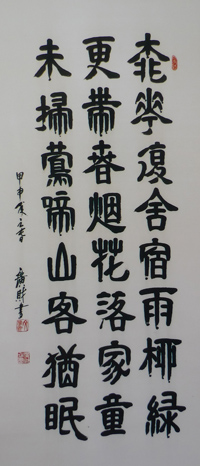 桃華復含宿雨柳緑
更帶春烟花落家童
未掃鶯啼山客猶眠
甲申之春
書